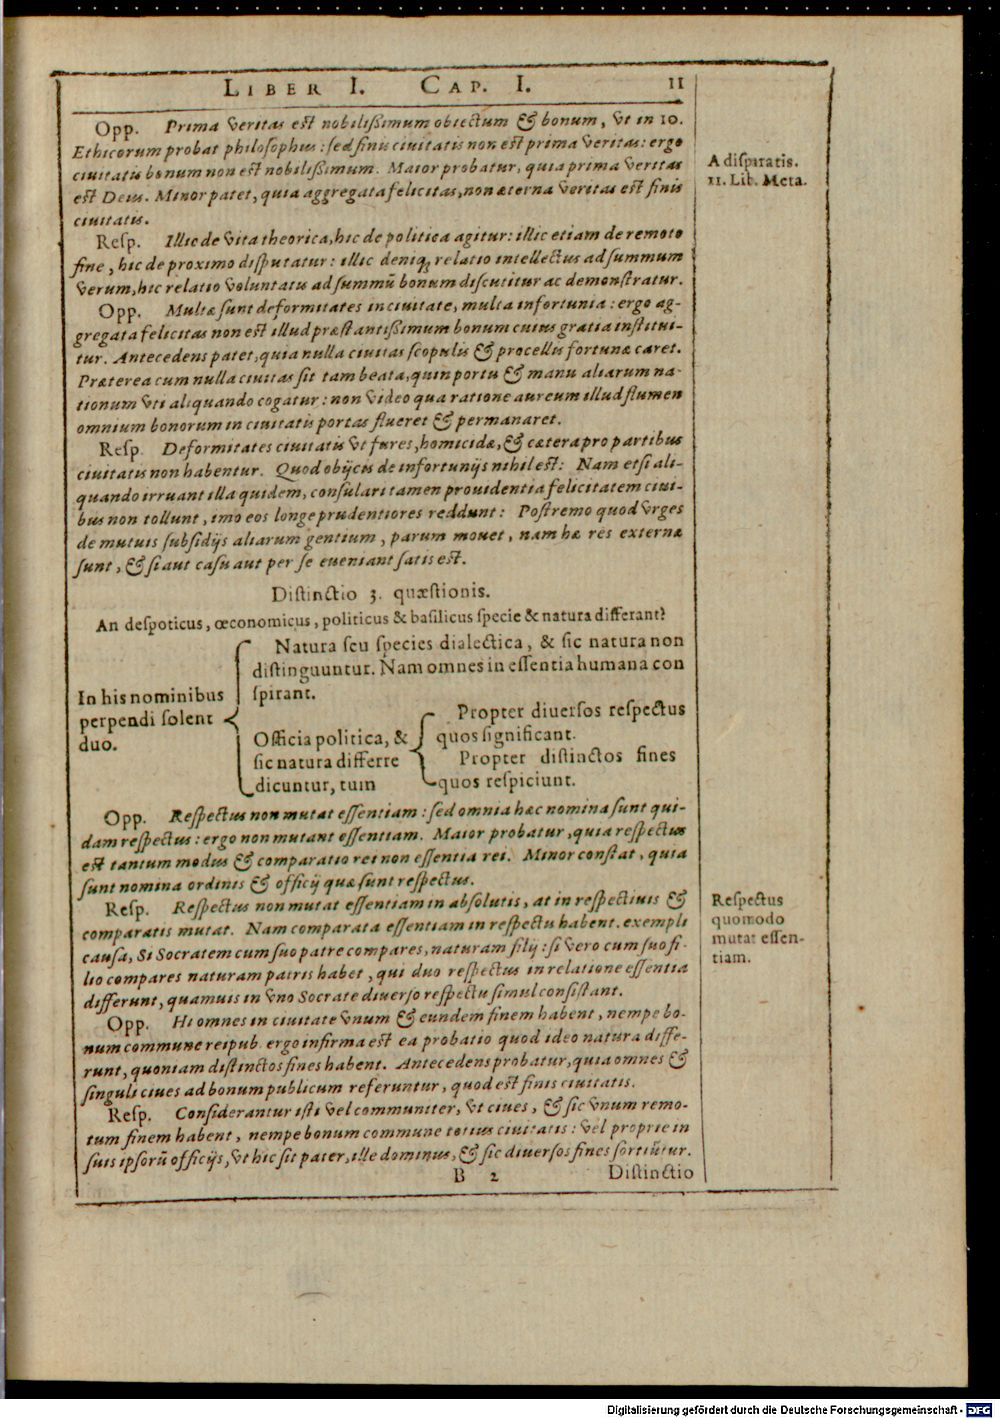 LIBER I. CAP. I. 11
Opp. Prima veritas est nobilißimum obiectum & bonum, vt in 10.
Ethicorum probat philosophus: sed finis ciuitatis non est prima veritas: ergo
ciuitatis bonum non est nobilißimum. Maior probatur, quia prima veritas
est Deus. Minor patet, quia aggregata felicitas, non æterna veritas est finis
ciuitatis.
A disparatis.
11. Lib. Meta.
Resp. Illic de vita theorica, hic de politica agitur: illic etiam de remoto
fine, hic de proximo disputatur: illic deniq; relatio intellectus ad summum
verum, hic relatio voluntatis ad summũ bonum discutitur ac demonstratur.
Opp. Multæ sunt deformitates in ciuitate, multa infortunia: ergo ag-
gregata felicitas non est illud præstantißimum bonum cuius gratia institui-
tur. Antecedens patet, quia nulla ciuitas scopulis & procellis fortunæ caret.
Præterea cum nulla ciuitas sit tam beata, quin portu & manu aliarum na-
tionum vti aliquando cogatur: non video qua ratione aureum illud flumen
omnium bonorum in ciuitatis portas flueret & permanaret.
Resp. Deformitates ciuitatis vt fures, homicidæ, & cætera pro partibus
ciuitatis non habentur. Quod obijcis de infortunijs nihil est: Nam etsi ali-
quando irruant illa quidem, consulari tamen prouidentia felicitatem ciui-
bus non tollunt, imo eos longe prudentiores reddunt: Postremo quod vrges
de mutuis subsidijs aliarum gentium, parum mouet, nam hæ res externæ
sunt, & si aut casu aut per se eueniant satis est.
Distinctio 3. quæstionis.
An despoticus, œconomicus, politicus & basilicus specie & natura differant?
In his nominibus
perpendi solent
duo.
Natura seu species dialectica, & sic natura non
distinguuntur. Nam omnes in essentia humana con
spirant.
Officia politica, &
sic natura differre
dicuntur, tum
Propter diuersos respectus
quos significant.
Propter distinctos fines
quos respiciunt.
Opp. Respectus non mutat essentiam: sed omnia hæc nomina sunt qui-
dam respectus: ergo non mutant essentiam. Maior probatur, quia respectus
est tantum modus & comparatio rei non essentia rei. Minor constat, quia
sunt nomina ordinis & officij quæ sunt respectus.
Resp. Respectus non mutat essentiam in absolutis, at in respectiuis &
comparatis mutat. Nam comparata essentiam in respectu habent. exempli
causa, Si Socratem cum suo patre compares, naturam filij: si vero cum suo fi-
lio compares naturam patris habet, qui duo respectus in relatione essentia
differunt, quamuis in vno Socrate diuerso respectu simul consistant.
Respectus
quomodo
mutat essen-
tiam.
Opp. Hi omnes in ciuitate vnum & eundem finem habent, nempe bo-
num commune reipub. ergo infirma est ea probatio quod ideo natura diffe-
runt, quoniam distinctos fines habent. Antecedens probatur, quia omnes &
singuli ciues ad bonum publicum referuntur, quod est finis ciuitatis.
Resp. Considerantur isti vel communiter, vt ciues, & sic vnum remo-
tum finem habent, nempe bonum commune totius ciuitatis: vel proprie in
suis ipsorũ officijs, vt hic sit pater, ille dominus, & sic diuersos fines sortiũtur.
B 2 Distinctio
Digitalisierung gefördert durch die Deutsche Forschungsgemeinschaft - DFG